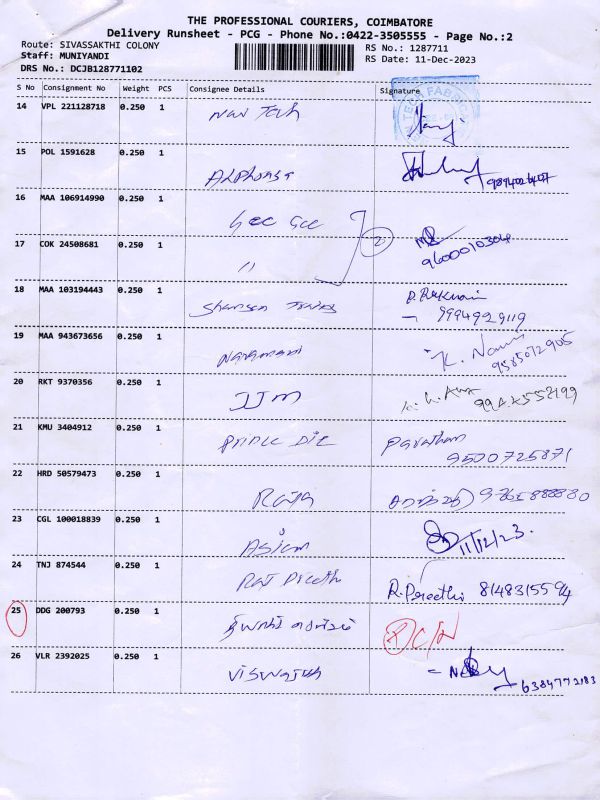 THE PROFESSIONAL COURIERS, COIMBATORE
Delivery Runsheet - PCG - Phone No.:0422-3505555 - Page No.:2
Route: SIVASSAKTHI COLONY
RS No.: 1287711
Staff: MUNIYANDI
RS Date: 11-Dec-2023
DRS No.: DCJB128771102
S No Consignment No Weight PCS Consignee Details Signature
14 VPL 221128718 0.250 1 Nav Tech
15 POL 1591628 0.250 1 Alphonsa
16 MAA 106914990 0.250 1 Gee Gee
17 COK 24508681 0.250 1 11 2 9600010304
18 MAA 103194443 0.250 1 9994929119
19 MAA 943673656 0.250 1 K. 9585072905
20 RKT 9370356 0.250 1 JJM
21 KMU 3404912 0.250 1 Prince Die 9500725871
22 HRD 50579473 0.250 1 Raja
23 CGL 100018839 0.250 1 Asian 11/12/23.
24 TNJ 874544 0.250 1 R. Preethi 8148315594
25 DDG 200793 0.250 1
26 VLR 2392025 0.250 1 6384772183